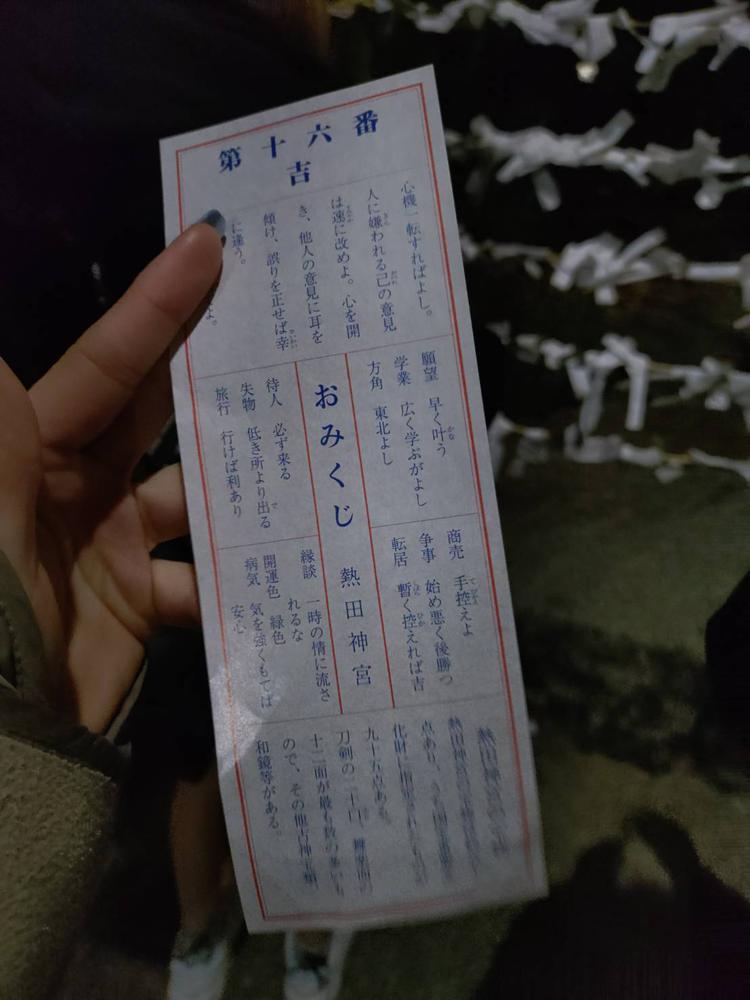 第十六番
吉
心機一転すればよし。
人に嫌われる己の意見
は速に改めよ。心を開
き、他人の意見に耳を
傾け、誤りを正せば幸
に逢う。
よ。
願望 早く叶う
学業 広く学ぶがよし
方角 東北よし
商売 手控えよ
争事 始め悪く後勝つ
転居 暫く控えれば吉
おみくじ 熱田神宮
待人 必ず来る
失物 低き所より出る
旅行 行けば利あり
縁談 一時の情に流さ
れるな
開運色 緑色
病気 気を強くもてば
安心
熱田神宮の
点あり、
化財に指定され
九十五点ある。
刀剣の二十口、舞楽面の
十二面が最も数の多いも
ので、その他古神宝類
和鏡等がある。